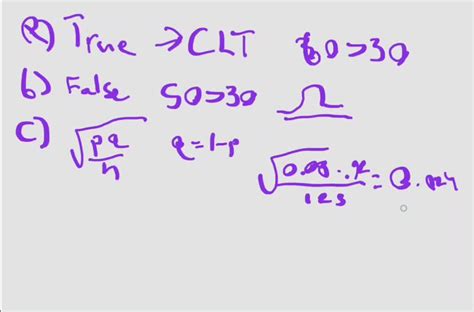 a) True → CLT 60 > 30
b) False 50 > 30
c) √(pq/n) q = 1-p √(0.08 · .92/125) = 0.024